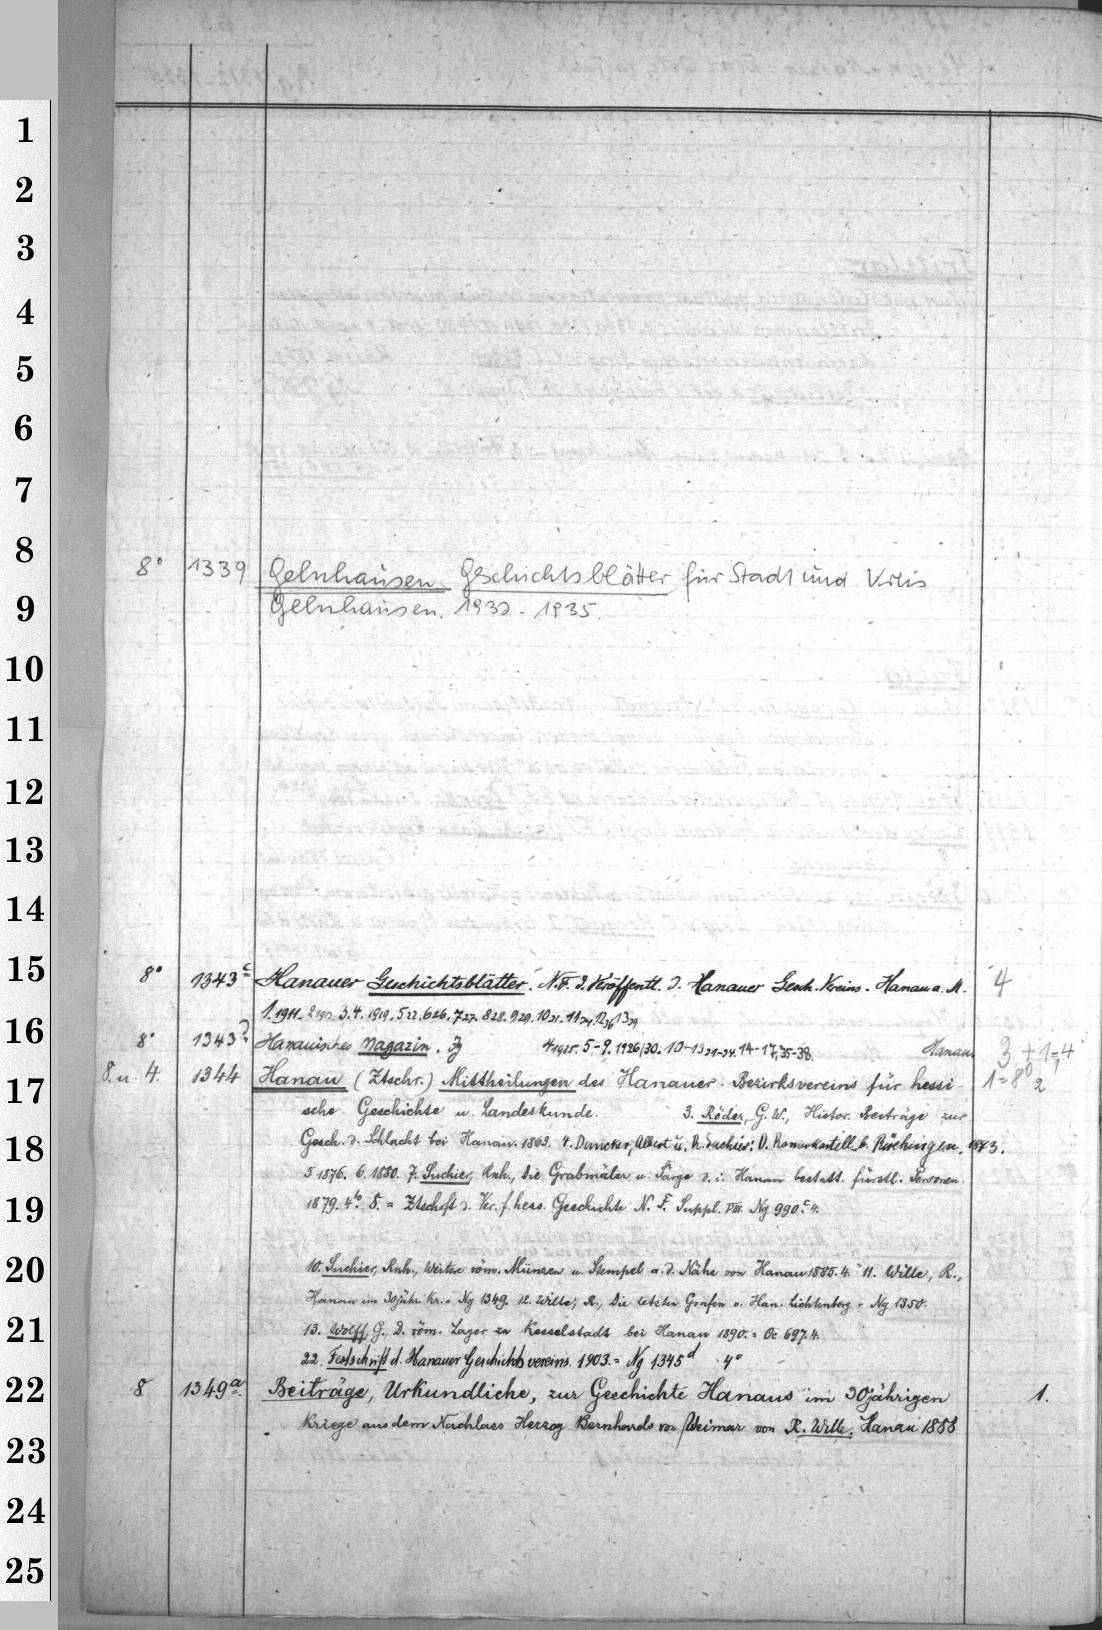 1
2
3
4
5
6
7
8
8° 1339 Gelnhausen. Geschichtsblätter für Stadt und Kreis
9
Gelnhausen. 1932 - 1935.
10
11
12
13
14
15
8° 1343c Hanauer Geschichtsblätter. N.F. d. Veröffentl. d. Hanauer Gesch. Vereins - Hanau a. M. 4
1. 1911. 2 1912. 3.4. 1919. 5 22. 6 26. 7 27. 8 28. 9 29. 10 31. 11 34, 12 36 13 39
16
8° 1343 Hanauisches Magazin. Jg 4 1925. 5-9. 1926/30. 10-13 31-34. 14-17, 35-38. Hanau 3 + 1 = 4
17
8. u. 4. 1344 Hanau (Ztschr.) Mittheilungen des Hanauer Bezirksvereins für hessi- 1 = 8° 2
sche Geschichte u. Landeskunde. 3. Röder, G. W., Histor. Beiträge zur
18
Gesch. d. Schlacht bei Hanau. 1863. 4. Duncker, Albert u. R. Suchier: D. Römerkastell b. Rückingen. 1873.
5 1876. 6. 1880. 7. Suchier, Rnh., Die Grabmäler u. Särge d. i. Hanau bestatt. fürstl. Personen.
19
1879. 4° 8. = Ztschft d. Ver. f. hess. Geschichte N. F. Suppl. VIII. Ng 990.c 4.
20
10. Suchier, Rnh., Weitere röm. Münzen u. Stempel a. d. Nähe von Hanau 1885. 4. 11. Wille, R.,
Hanau im 30jähr. Kr. = Ng 1349. 12. Wille, R., Die letzten Grafen v. Han. Lichtenberg = Ng 1350.
21
13. Wolff, G. D. röm. Lager zu Kesselstadt bei Hanau 1890. = Oc 697. 4.
22. Festschrift d. Hanauer Geschichtsvereins. 1903. = Ng 1345d 4°
22
8 1349a. Beiträge, Urkundliche, zur Geschichte Hanaus im 30jährigen 1.
Kriege aus dem Nachlass Herzog Bernhards von Weimar von R. Wille. Hanau 1888
23
24
25